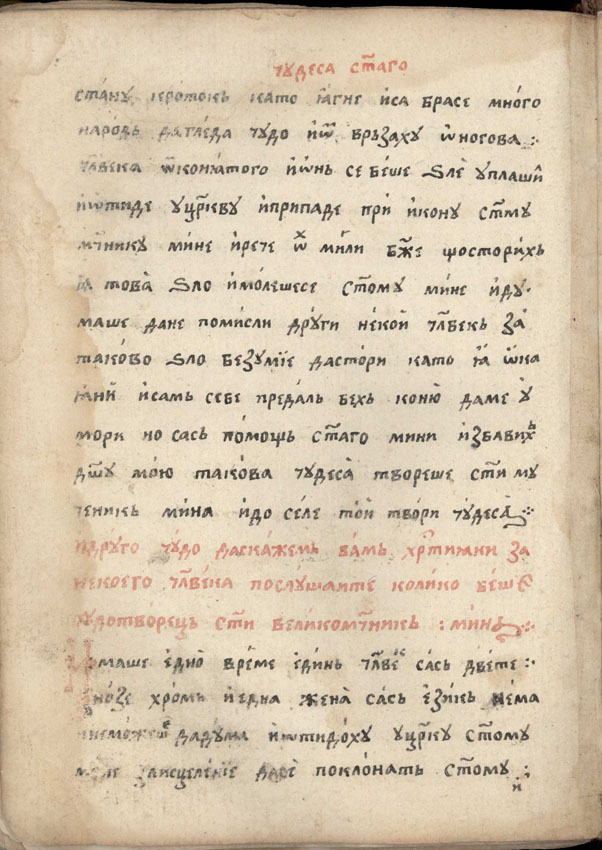 чꙋдеса ст҃аго
станꙋ кротокь като ꙗгне иса брасе много
народь да гледа чꙋдо и ѿ врьзахꙋ ѡногова :·
чл҃века ѿ конꙗтого и ѡнь се беше ѕле ꙋплашиⷧ҇
и ѿтиде ꙋ цр҃квꙋ и припаде при иконꙋ ст҃мꙋ
мч҃никꙋ мине и рече ѡⷯ мили бж҃е що сторихь
ꙗ това ѕло и молешесе ст҃омꙋ мине и дꙋ·
маше дане помисли дрꙋги некои чл҃векь за
таково ѕло безꙋмїе да стори като ꙗ ѡка
ꙗни и самь себе предаль бехь коню да ме ꙋ
мори но сась помощь ст҃аго мини избавихⸯ
дш҃ꙋ мою такова чꙋдеса твореше ст҃и мꙋ
ченикь мина и до селе тои твори чꙋдеса :·
и дрꙋго чꙋдо да скажемь вамь хрⷭ҇тиꙗни за
некоего чл҃века послꙋшаите колико беше
чꙋдотворець ст҃и великомч҃никь : мина
маше едно време единь чл҃векⸯ сась двете :·
нозе хромь и една жена сась езикь нема
неможеше да дꙋма и ѿтидохꙋ ꙋ цр҃кꙋ ст҃омꙋ
мине за исцеленїе да се поклонать ст҃омꙋ
и